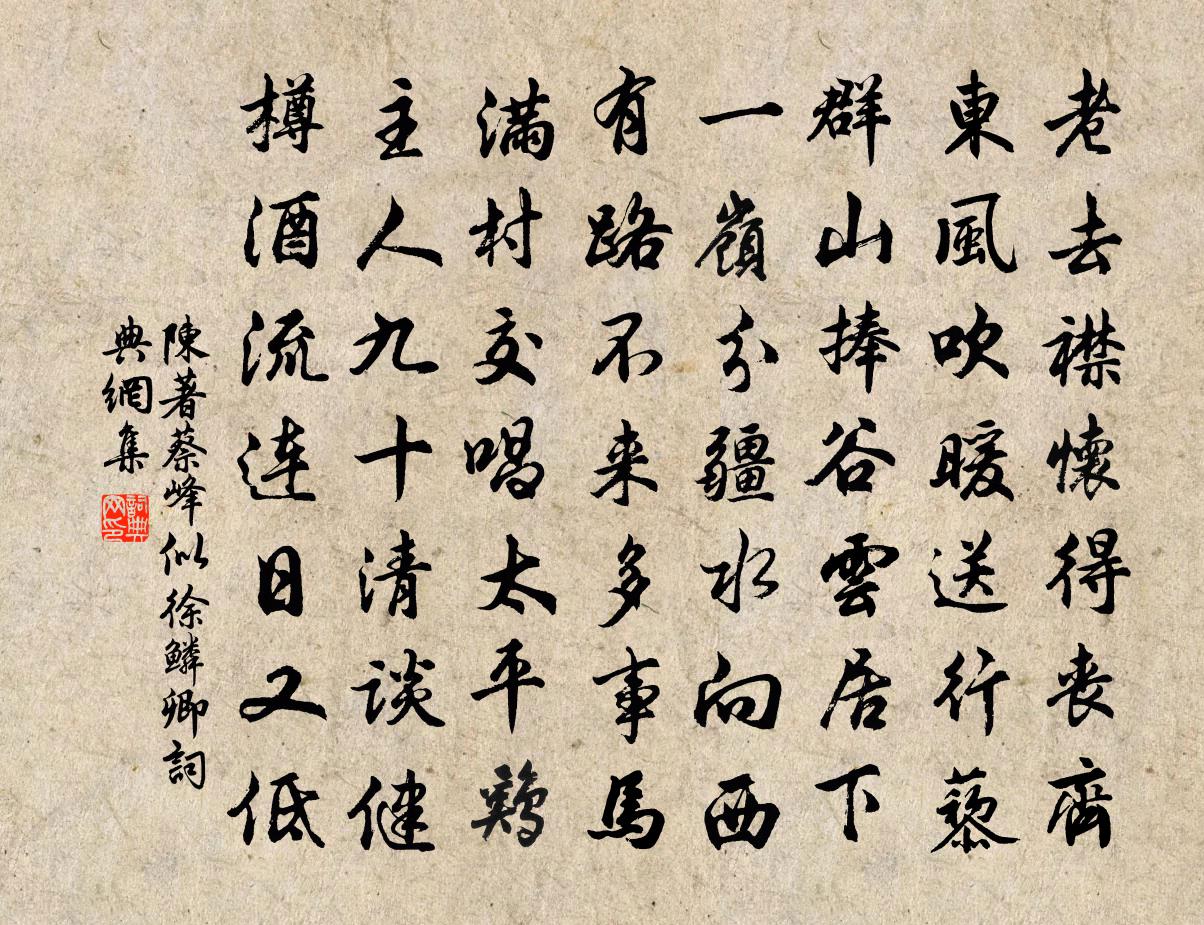 老去襟懷得喪齊
東風吹暖送行藜
群山捧谷雲居下
一嶺分疆水向西
有路不来多事馬
滿村交唱太平鷄
主人九十清談健
樽酒流連日又低
陳著蔡峰似徐鱗卿詞
典網集
詞典
网印